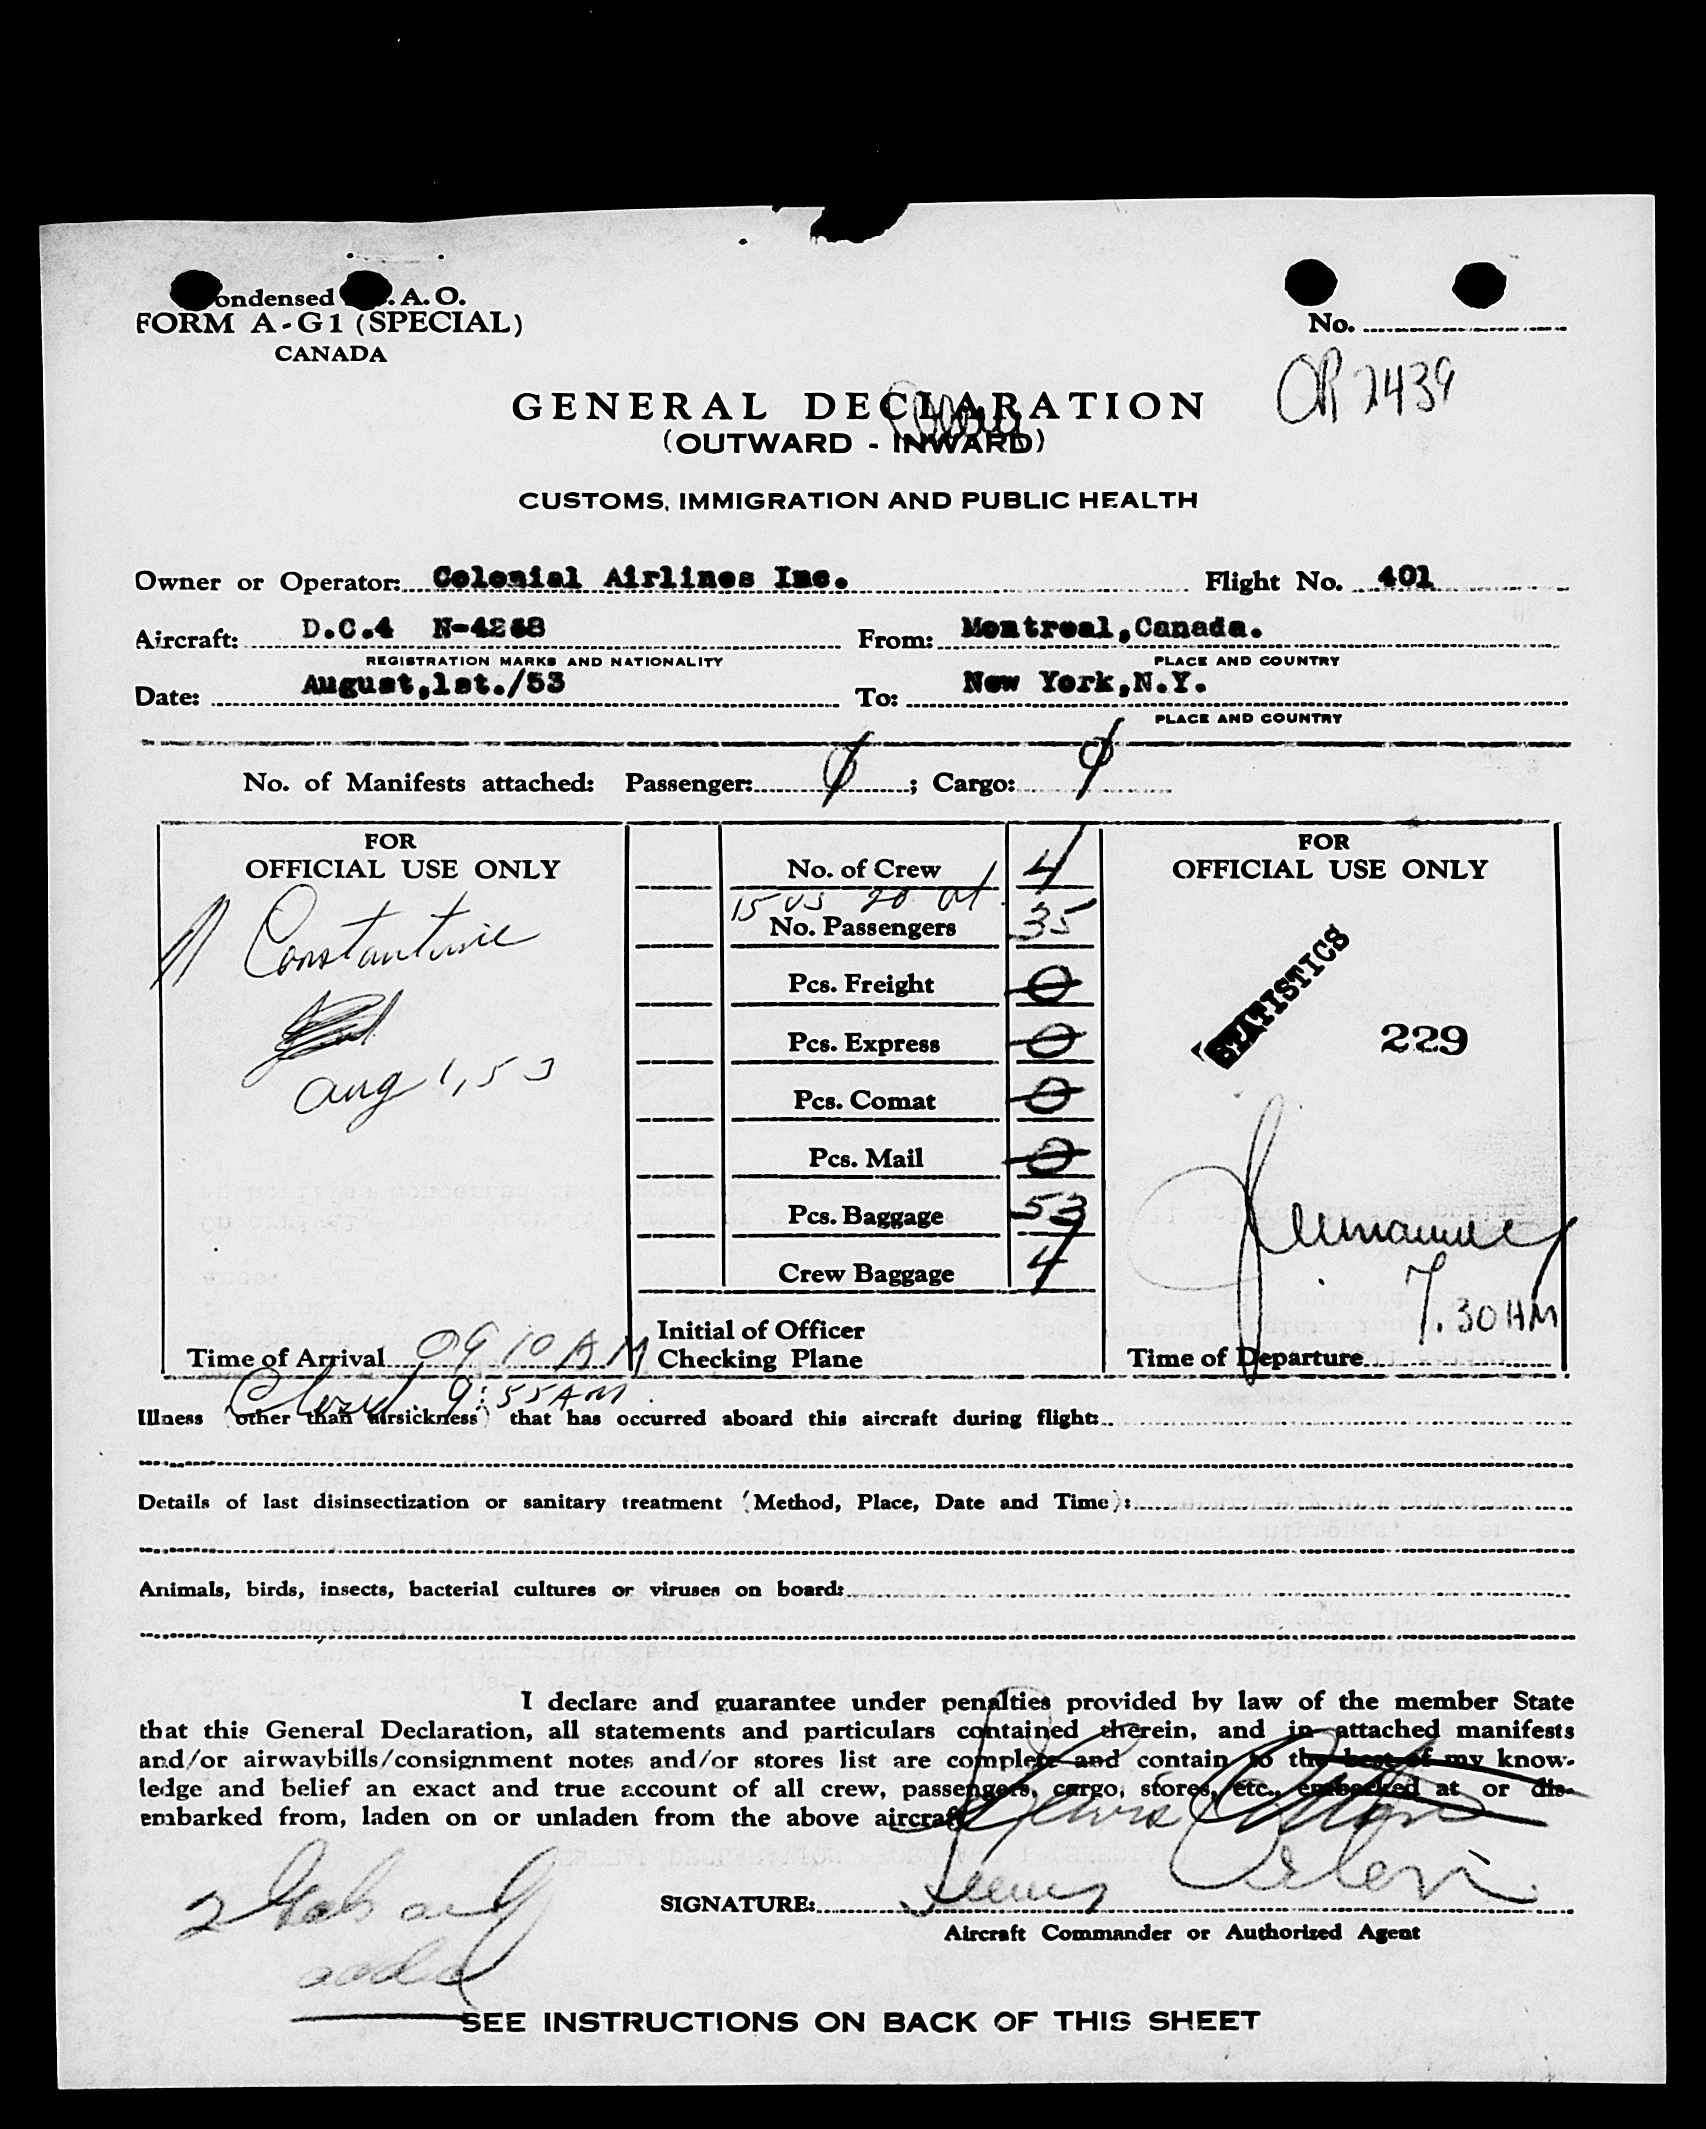 ondensed . A. O.
FORM A-G1 (SPECIAL)
CANADA
No.
OR 2439
GENERAL DECLARATION
(OUTWARD - INWARD)
CUSTOMS, IMMIGRATION AND PUBLIC HEALTH
Owner or Operator: Colonial Airlines Inc. Flight No. 401
Aircraft: D.C.4 N-4268 From: Montreal,Canada.
REGISTRATION MARKS AND NATIONALITY PLACE AND COUNTRY
Date: August,1st./53 To: New York,N.Y.
PLACE AND COUNTRY
No. of Manifests attached: Passenger: 0 ; Cargo: 0
FOR
OFFICIAL USE ONLY
Constantine
Aug 1, 53
Time of Arrival 09 10 AM
Closed 9:55 AM
No. of Crew 4
15 US 20 al
No. Passengers 35
Pcs. Freight 0
Pcs. Express 0
Pcs. Comat 0
Pcs. Mail 0
Pcs. Baggage 53
Crew Baggage 4
Initial of Officer
Checking Plane
FOR
OFFICIAL USE ONLY
STATISTICS
229
7.30 AM
Time of Departure
Illness (other than airsickness) that has occurred aboard this aircraft during flight:
Details of last disinsectization or sanitary treatment (Method, Place, Date and Time):
Animals, birds, insects, bacterial cultures or viruses on board:
I declare and guarantee under penalties provided by law of the member State
that this General Declaration, all statements and particulars contained therein, and in attached manifests
and/or airwaybills/consignment notes and/or stores list are complete and contain to the best of my know-
ledge and belief an exact and true account of all crew, passengers, cargo, stores, etc., embarked at or dis-
embarked from, laden on or unladen from the above aircraft
SIGNATURE:
Aircraft Commander or Authorized Agent
SEE INSTRUCTIONS ON BACK OF THIS SHEET